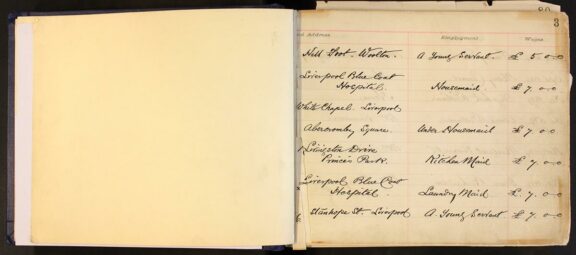 80
3
Address Employment Wages
Hill Foot. Woolton. A Young Servant. £ 5.0.0
Liverpool Blue Coat
Hospital. Housemaid £ 7.0.0
White Chapel. Liverpool
Abercromby Square. Under Housemaid £ 7.0.0
Livingston Drive
Princes Park. Kitchen Maid £ 7.0.0
Liverpool Blue Coat
Hospital. Laundry Maid £ 7.0.0
Stanhope St. Liverpool A Young Servant £ 7.0.0